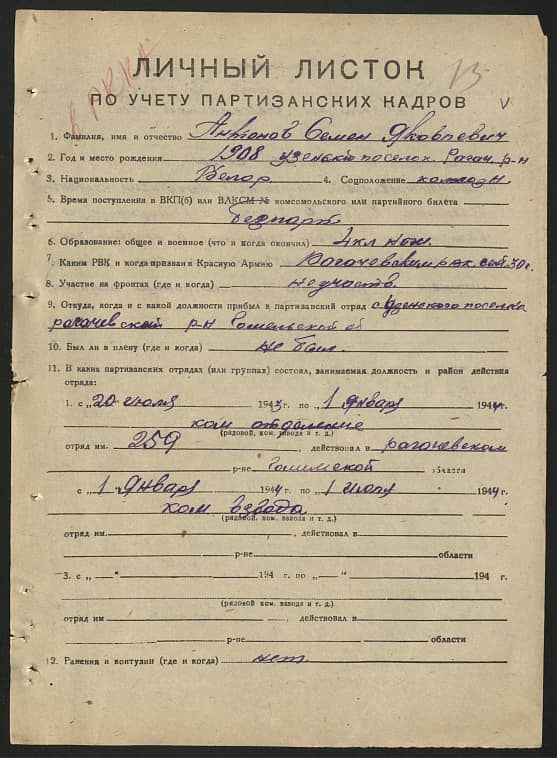 в РККА
13
ЛИЧНЫЙ ЛИСТОК
ПО УЧЕТУ ПАРТИЗАНСКИХ КАДРОВ
V
1. Фамилия, имя и отчество Антонов Семен Яковлевич
2. Год и место рождения 1908 узенский поселок Рагач. р-н
3. Национальность Белор 4. Соцположение колхозн.
5. Время поступления в ВКП(б) или ВЛКСМ № комсомольского или партийного билета
безпарт
6. Образование: общее и военное (что и когда окончил) 4 кл
7. Каким РВК и когда призван в Красную Армию Рагачевским рвк 30 г.
8. Участие на фронтах (где и когда) не участв
9. Откуда, когда и с какой должности прибыл в партизанский отряд с Узенского поселка
рагачевской р-н Гомельской об
10. Был ли в плену (где и когда) не был.
11. В каких партизанских отрядах (или группах) состоял, занимаемая должность и район действия
отряда:
1. с „20 июля 1943 г. по „1 января 1944 г.
ком отделение
(рядовой, ком. взвода и т. д.)
отряд им. 259, действовал в рагочевском
р-не Гомимской области
с „1 января 1944 г по „1 июля 1944 г.
ком взвода
(рядовой, ком. взвода и т. д.)
отряд им. , действовал в
р-не области
3. с „ — “ 194 г. по „ — “ 194 г.
(рядовой ком. взвода и т. д.)
отряд им , действовал в
р-не области
12. Ранения и контузии (где и когда) нет